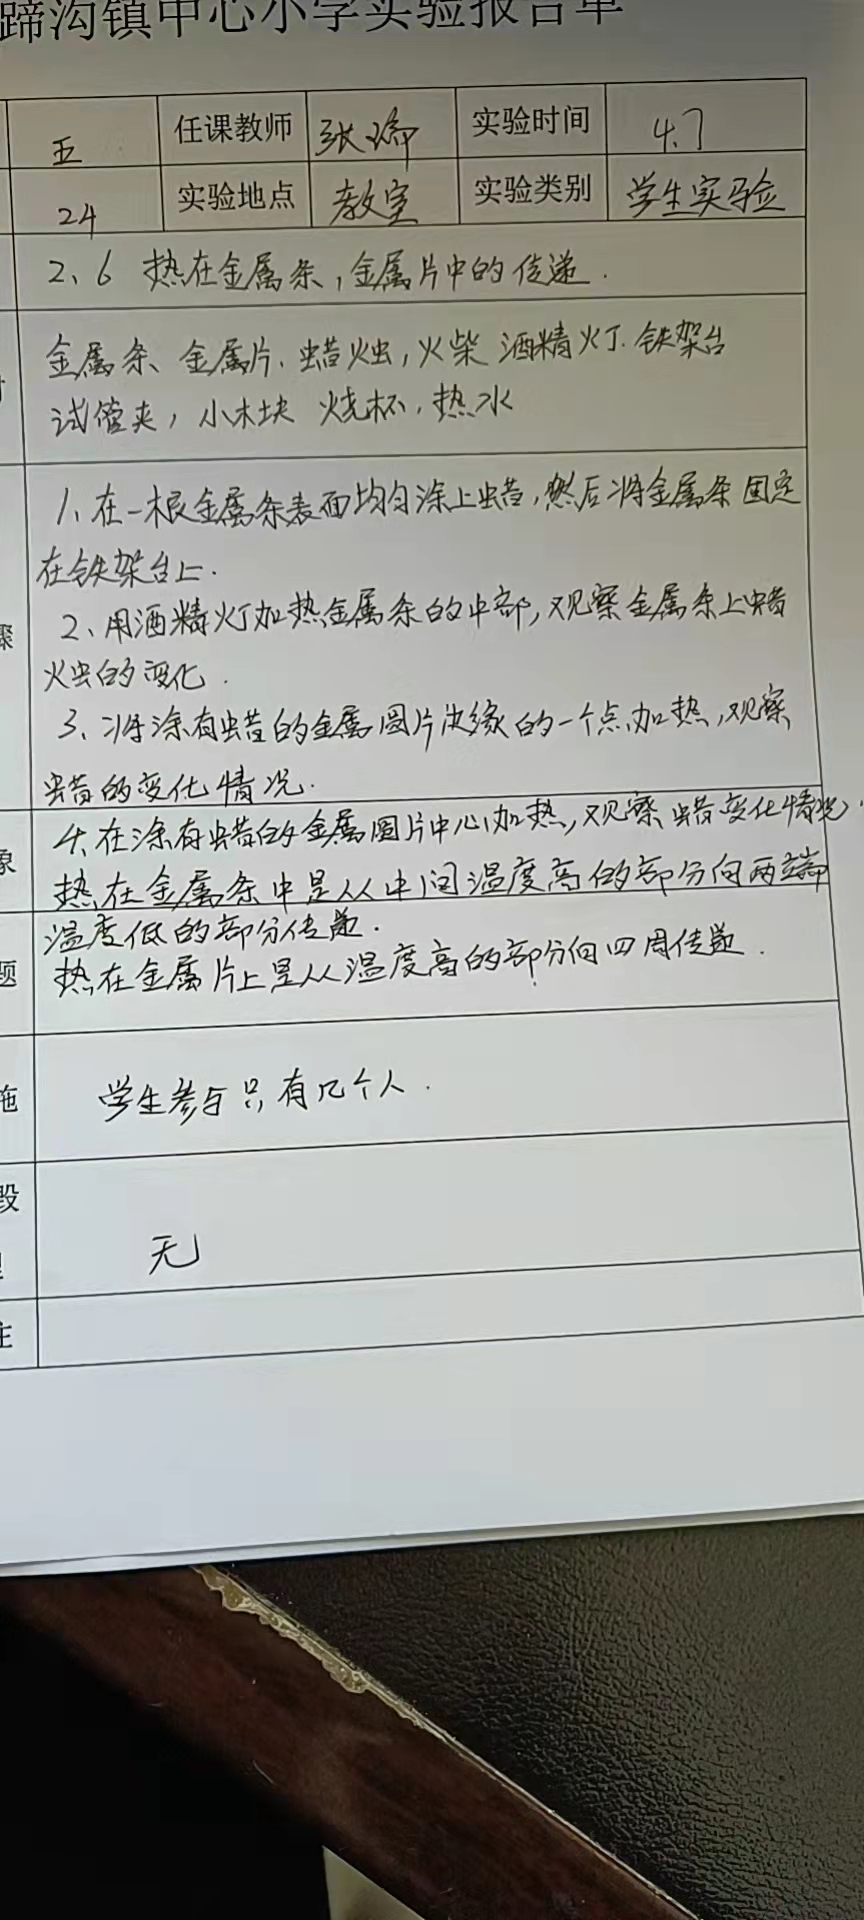 蹄沟镇中心小学实验报告单
五 任课教师 张 实验时间 4.7
24 实验地点 教室 实验类别 学生实验
2、6 热在金属条,金属片中的传递.
金属条、金属片.蜡烛,火柴 酒精灯.铁架台
试管夹,小木块 烧杯.热水
1、在一根金属条表面均匀涂上蜡,然后将金属条固定
在铁架台上.
骤
2、用酒精灯加热金属条的中部,观察金属条上蜡
烛的变化.
3、将涂有蜡的金属圆片边缘的一个点加热,观察
蜡的变化情况.
4.在涂有蜡的金属圆片中心加热,观察蜡变化情况.
象
热在金属条中是从中间温度高的部分向两端
温度低的部分传递.
题
热在金属片上是从温度高的部分向四周传递.
施
学生参与只有几个人.
毁
无
注